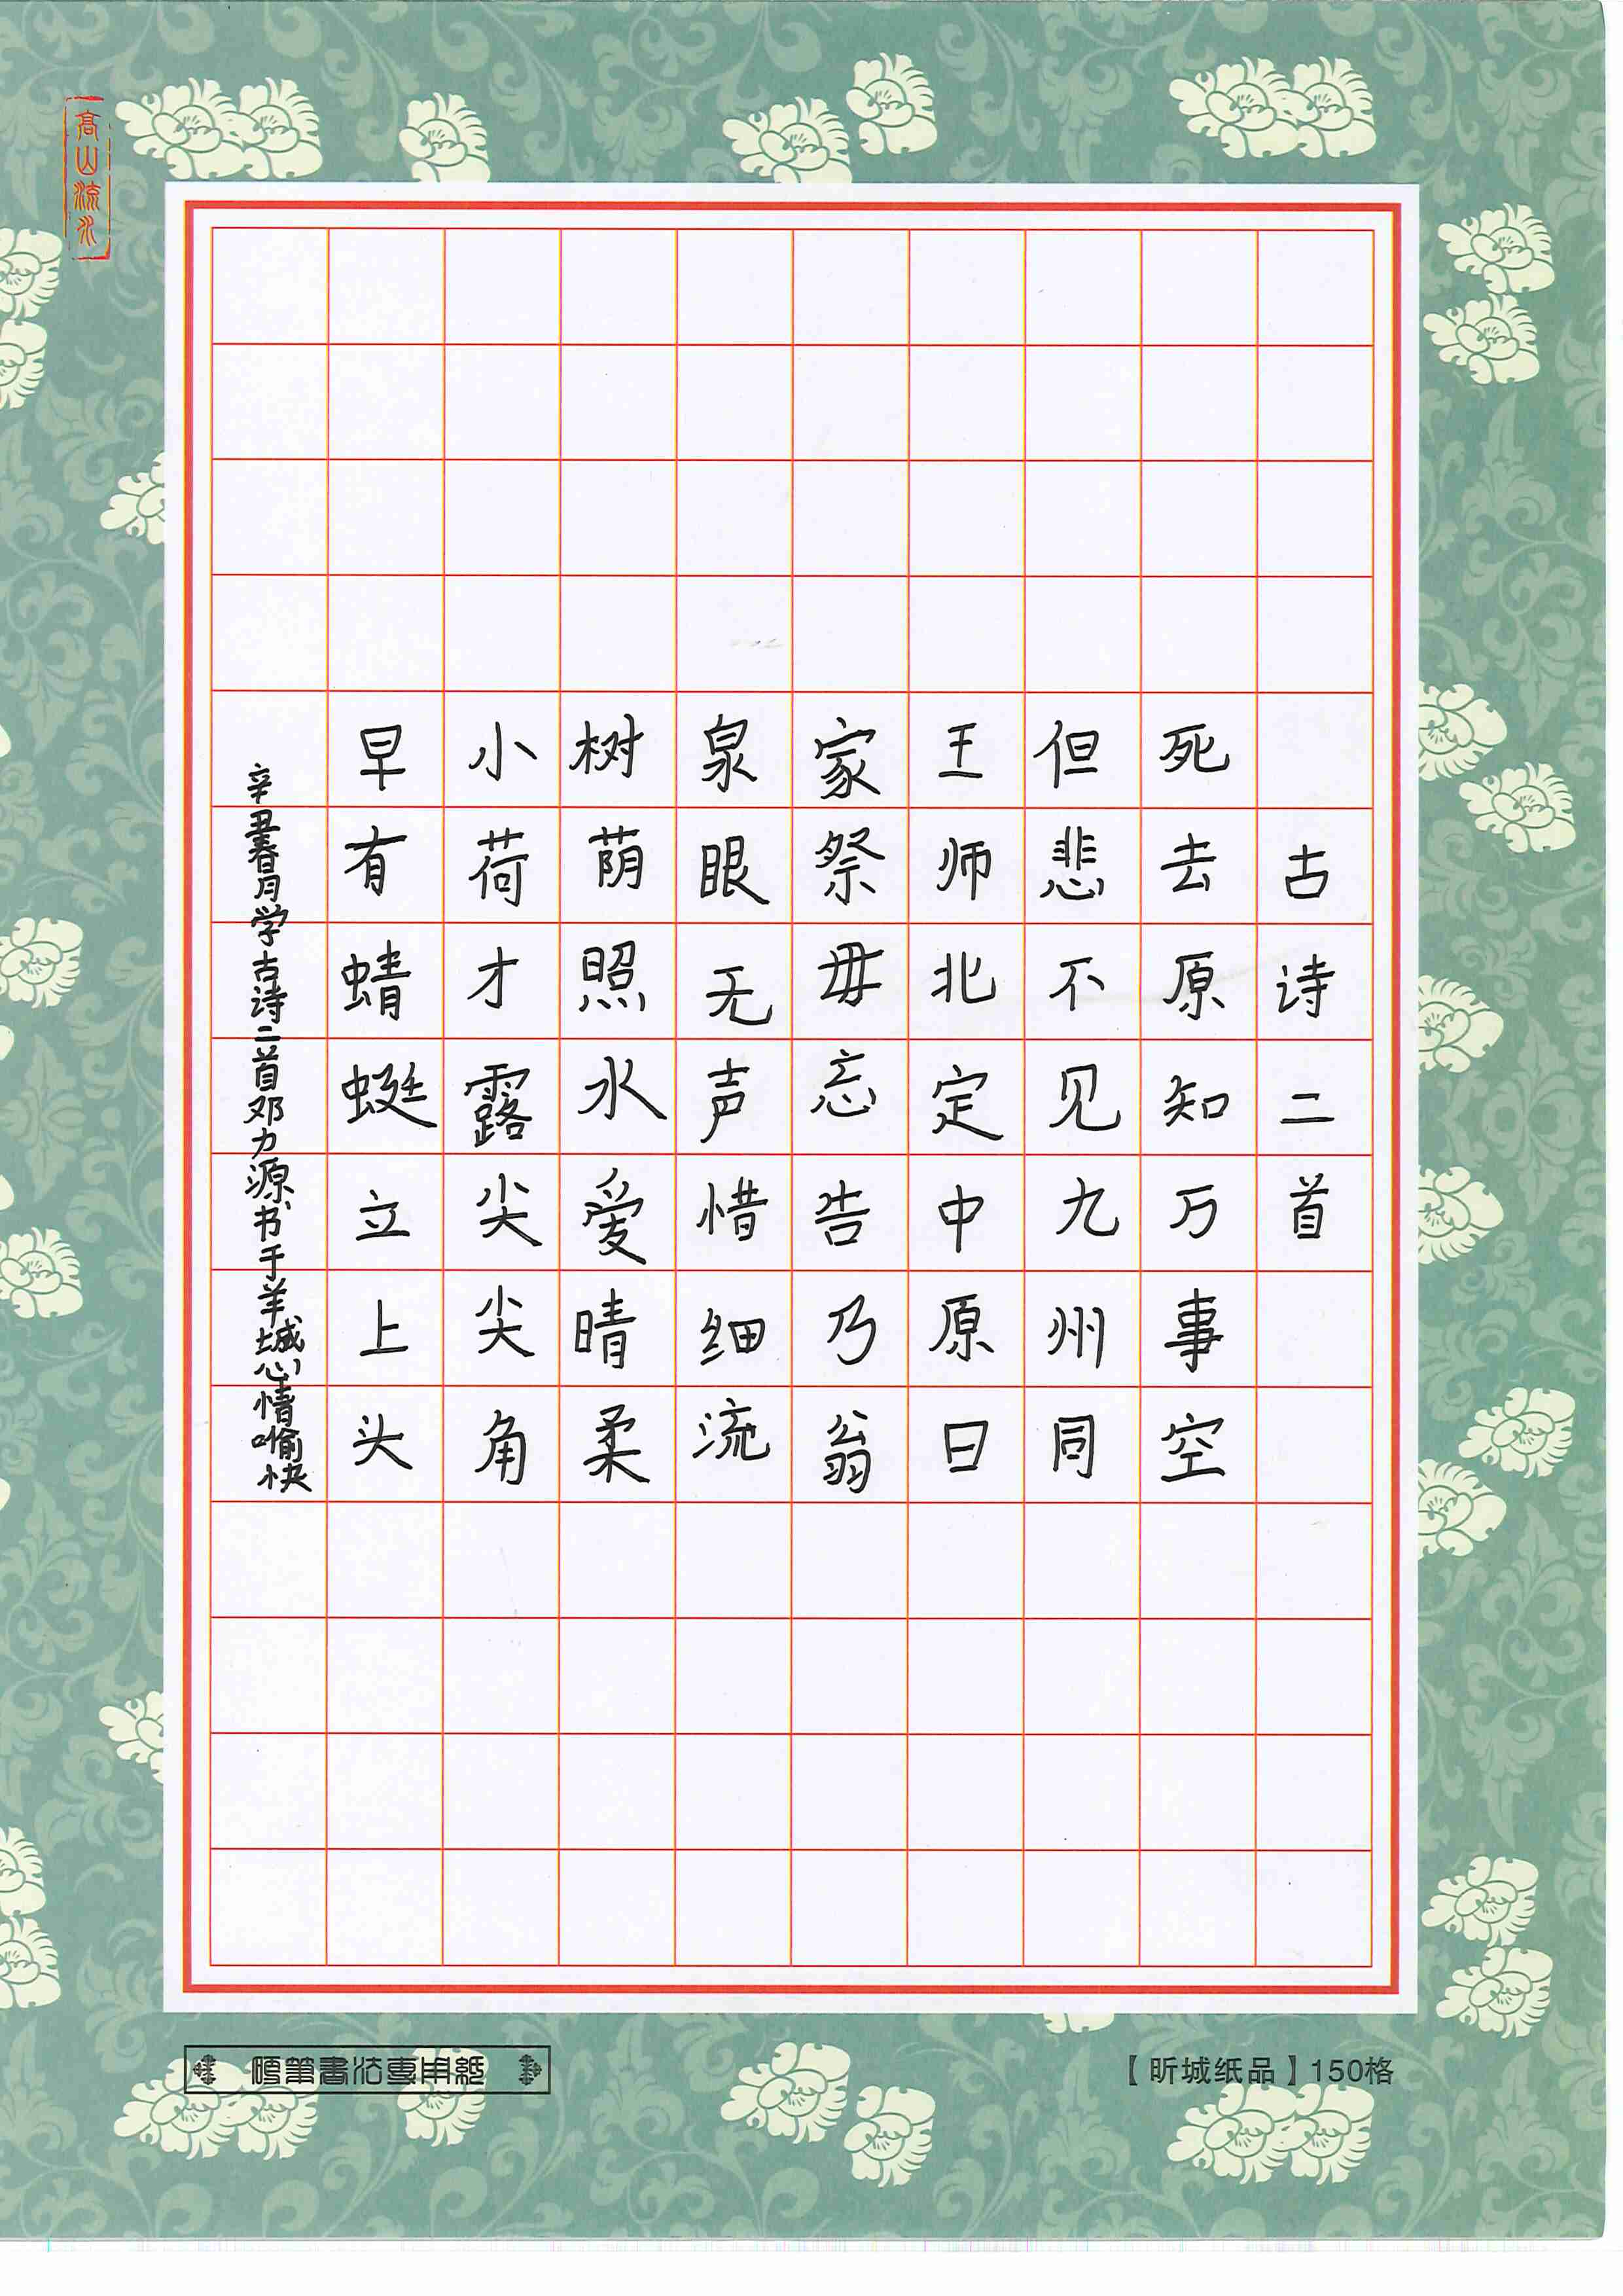 高山流水
古诗二首
死去原知万事空
但悲不见九州同
王师北定中原日
家祭毋忘告乃翁
泉眼无声惜细流
树荫照水爱晴柔
小荷才露尖尖角
早有蜻蜓立上头
辛丑春月学古诗二首邓力源书于羊城心情愉快
硬筆書法專用紙
【昕城纸品】150格